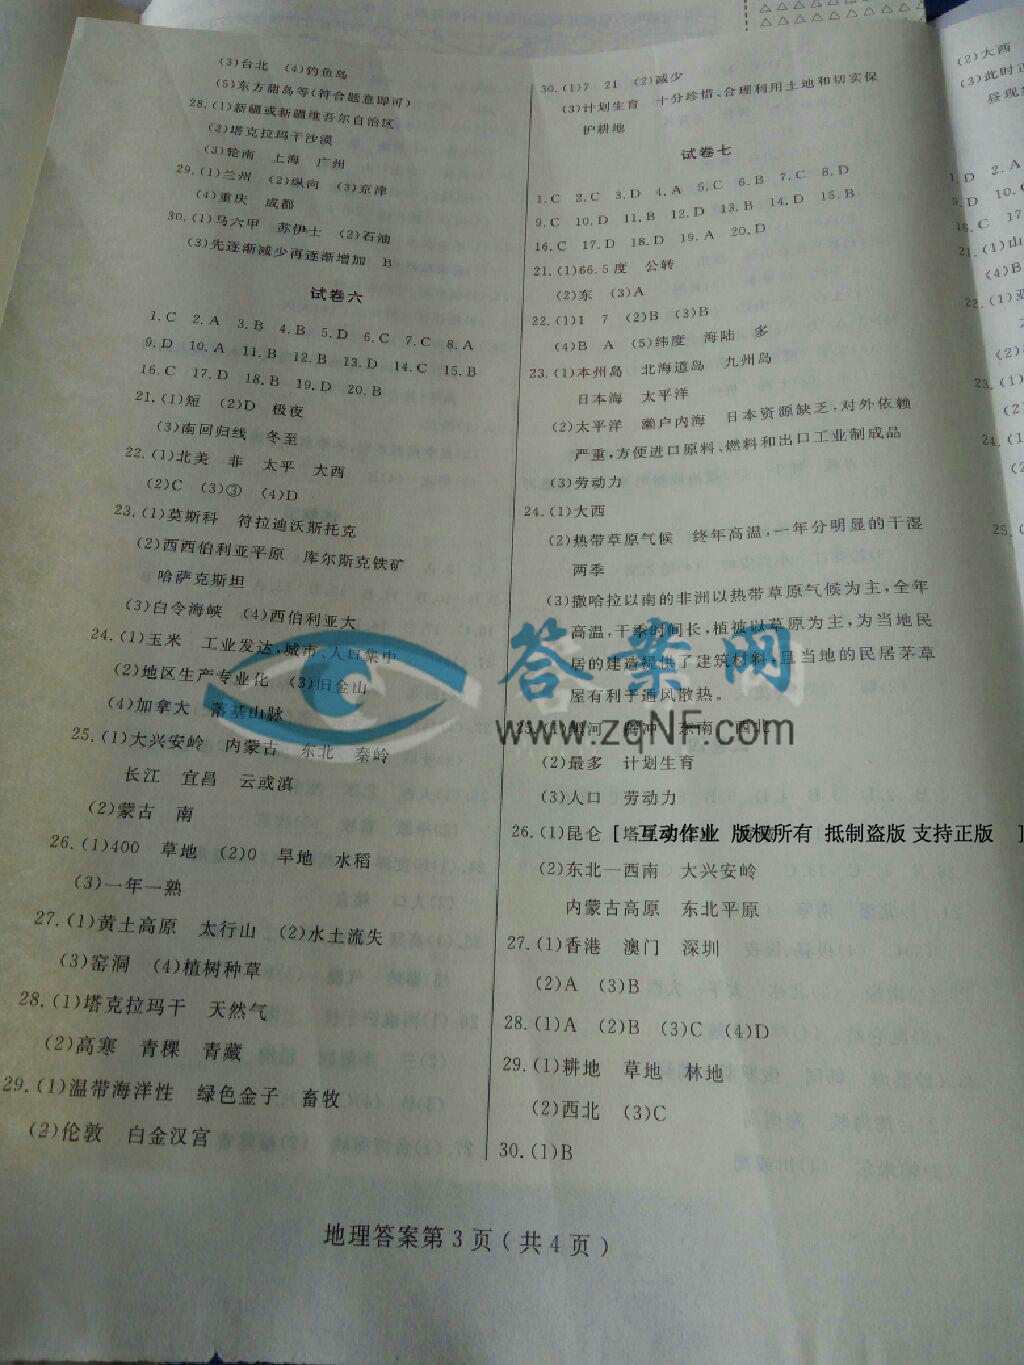 (3)台北 (4)钓鱼岛
(5)东方甜岛等(符合题意即可)
28.(1)新疆或新疆维吾尔自治区
(2)塔克拉玛干沙漠
(3)轮南 上海 广州
29.(1)兰州 (2)纵向 (3)京津
(4)重庆 成都
30.(1)马六甲 苏伊士 (2)石油
(3)先逐渐减少再逐渐增加 B
试卷六
1.C 2.A 3.B 4.B 5.D 6.C 7.C 8.A
9.D 10.A 11.B 12.B 13.D 14.C 15.B
16.C 17.D 18.B 19.D 20.B
21.(1)短 (2)D 极夜
(3)南回归线 冬至
22.(1)北美 非 太平 大西
(2)C (3)③ (4)D
23.(1)莫斯科 符拉迪沃斯托克
(2)西西伯利亚平原 库尔斯克铁矿
哈萨克斯坦
(3)白令海峡 (4)西伯利亚大
24.(1)玉米 工业发达,城市、人口集中
(2)地区生产专业化 (3)旧金山
(4)加拿大 落基山脉
25.(1)大兴安岭 内蒙古 东北 秦岭
长江 宜昌 云或滇
(2)蒙古 南
26.(1)400 草地 (2)0 旱地 水稻
(3)一年一熟
27.(1)黄土高原 太行山 (2)水土流失
(3)窑洞 (4)植树种草
28.(1)塔克拉玛干 天然气
(2)高寒 青稞 青藏
29.(1)温带海洋性 绿色金子 畜牧
(2)伦敦 白金汉宫
30.(1)7 21 (2)减少
(3)计划生育 十分珍惜、合理利用土地和切实保
护耕地
试卷七
1.C 2.C 3.D 4.A 5.C 6.B 7.C 8.D
9.C 10.D 11.B 12.D 13.B 14.D 15.B
16.C 17.D 18.D 19.A 20.D
21.(1)66.5度 公转
(2)东 (3)A
22.(1)1 7 (2)B (3)B
(4)B A (5)纬度 海陆 多
23.(1)本州岛 北海道岛 九州岛
日本海 太平洋
(2)太平洋 濑户内海 日本资源缺乏,对外依赖
严重,方便进口原料、燃料和出口工业制成品
(3)劳动力
24.(1)大西
(2)热带草原气候 终年高温,一年分明显的干湿
两季
(3)撒哈拉以南的非洲以热带草原气候为主,全年
高温,干季时间长,植被以草原为主,为当地民
居的建造提供了建筑材料,且当地的民居茅草
屋有利于通风散热。
25.(1)黑河 腾冲 东南 西北
(2)最多 计划生育
(3)人口 劳动力
26.(1)昆仑 [塔 互动作业 版权所有 抵制盗版 支持正版 ]
(2)东北—西南 大兴安岭
内蒙古高原 东北平原
27.(1)香港 澳门 深圳
(2)A (3)B
28.(1)A (2)B (3)C (4)D
29.(1)耕地 草地 林地
(2)西北 (3)C
30.(1)B
地理答案第3页(共4页)
答案网
www.zqNF.com
(2)大西
(3)此时正
昼现